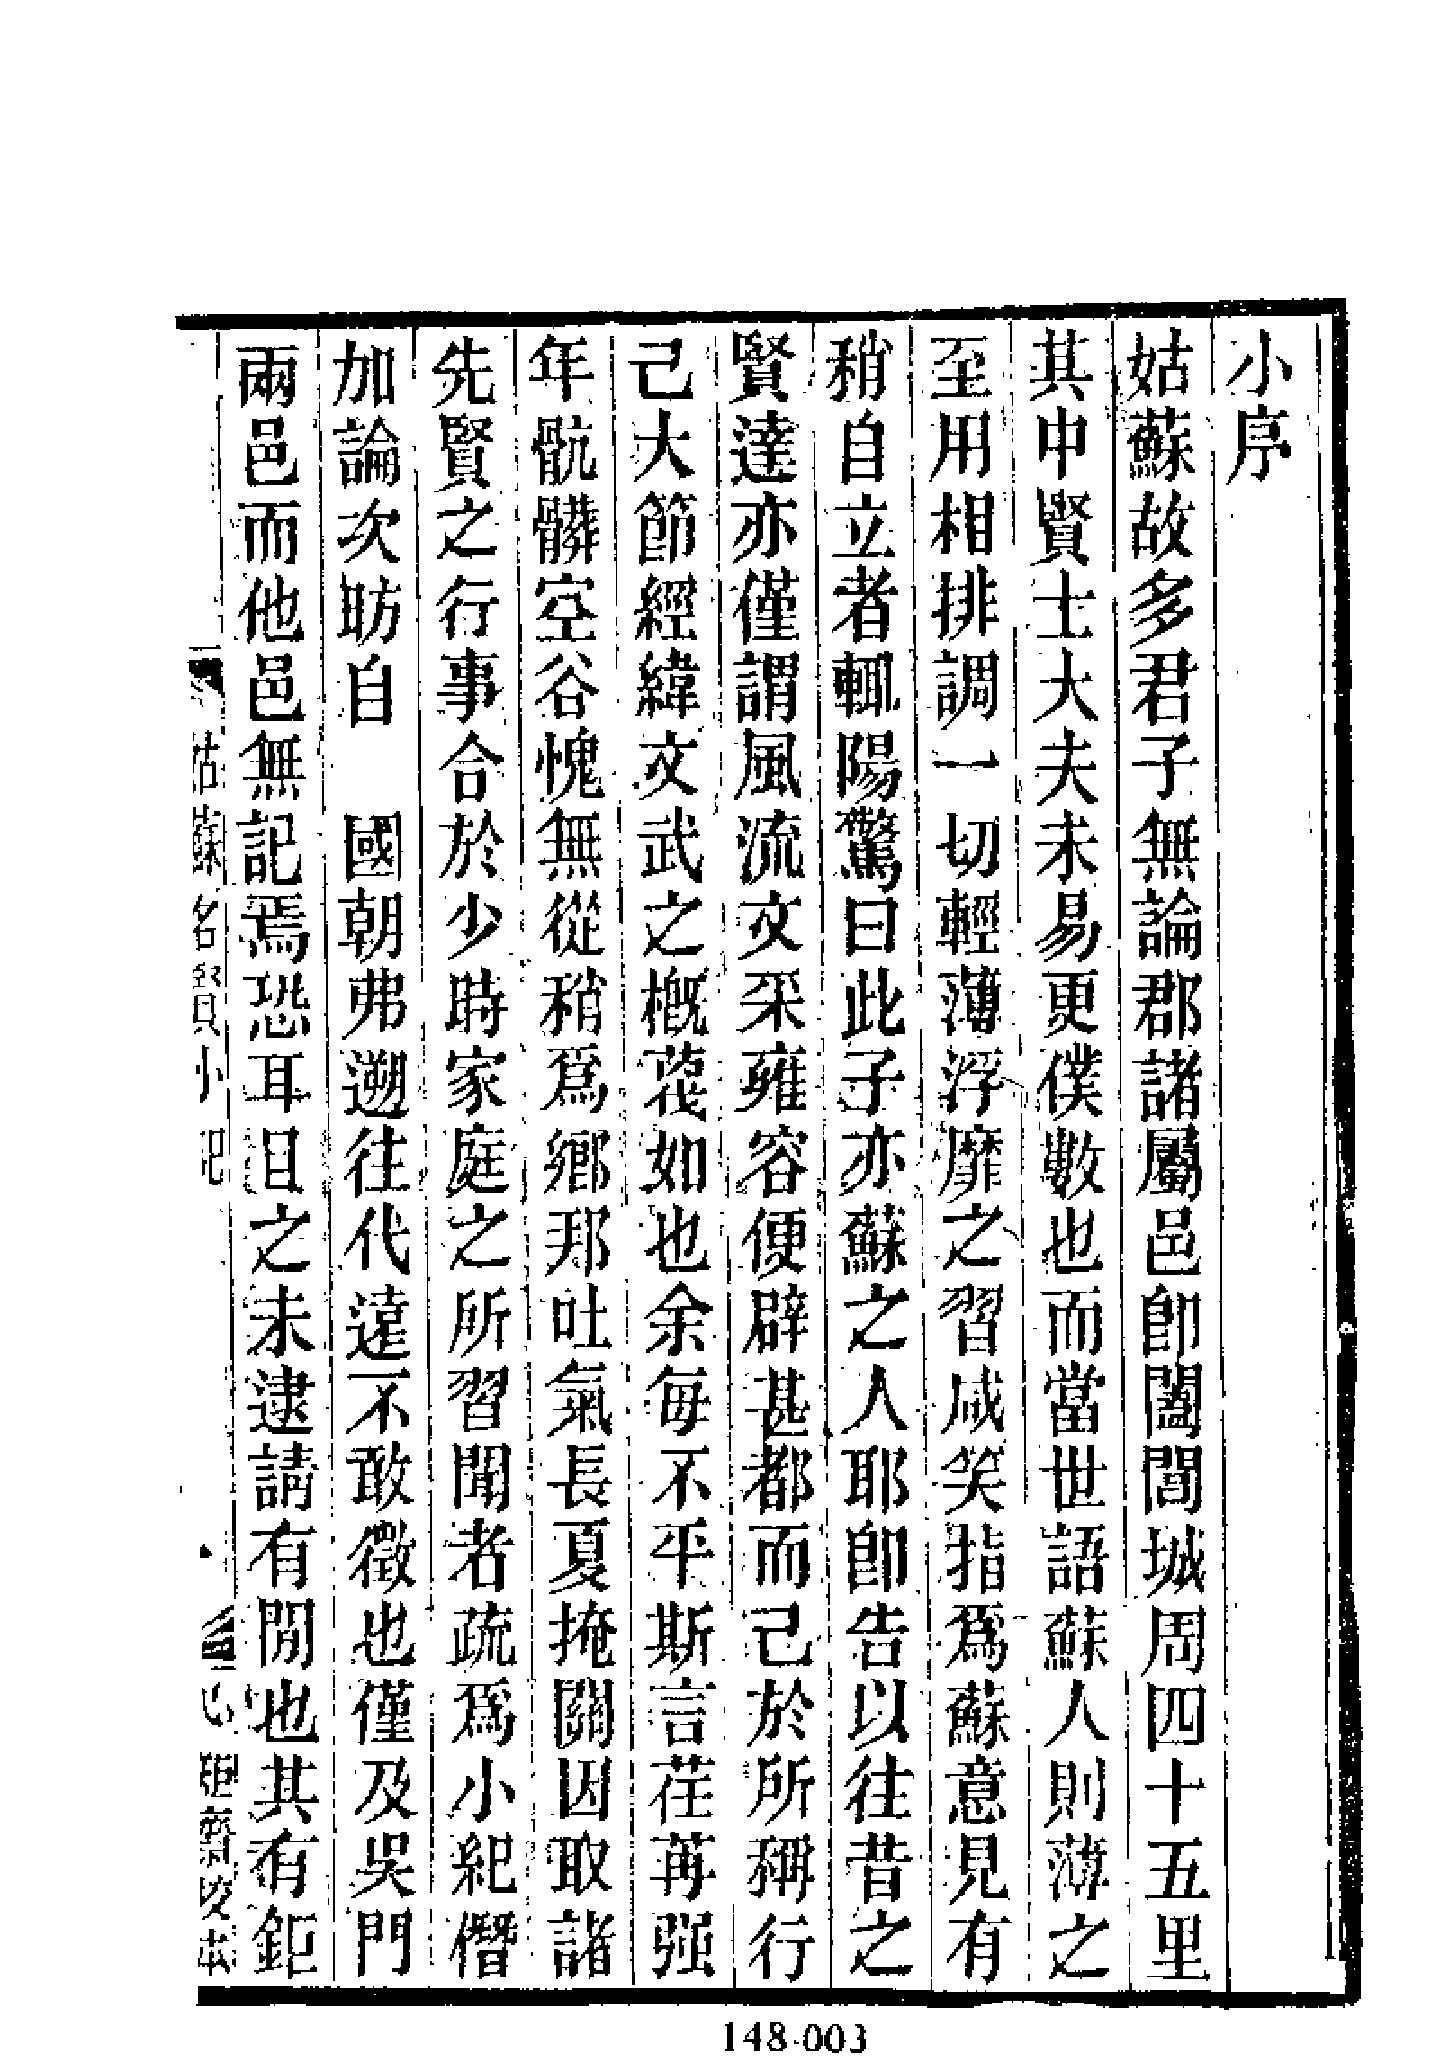 小序
姑蘇故多君子無論郡諸屬邑卽闔閭城周四十五里
其中賢士大夫未易更僕數也而當世語蘇人則薄之
至用相排調一切輕薄浮靡之習咸笑指爲蘇意見有
稍自立者輒陽驚曰此子亦蘇之人耶卽告以往昔之
賢達亦僅謂風流文采雍容便辟甚都而已於所稱行
己大節經緯文武之槪蔑如也余每不平斯言荏苒强
年骯髒空谷愧無從稍爲鄉邦吐氣長夏掩關因取諸
先賢之行事合於少時家庭之所習聞者疏爲小紀僭
加論次昉自 國朝弗遡往代遠不敢徵也僅及吳門
兩邑而他邑無記焉恐耳目之未逮請有閒也其有鉅
姑蘇名賢小紀
心矩齋校本
148-003